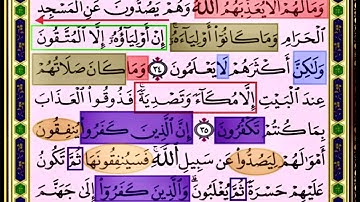 وَمَا لَهُمْ أَلَّا يُعَذِّبَهُمُ اللَّهُ وَهُمْ يَصُدُّونَ عَنِ الْمَسْجِدِ
الْحَرَامِ وَمَا كَانُوا أَوْلِيَاءَهُ إِنْ أَوْلِيَاؤُهُ إِلَّا الْمُتَّقُونَ
وَلَٰكِنَّ أَكْثَرَهُمْ لَا يَعْلَمُونَ ٣٤ وَمَا كَانَ صَلَاتُهُمْ
عِنْدَ الْبَيْتِ إِلَّا مُكَاءً وَتَصْدِيَةً فَذُوقُوا الْعَذَابَ
بِمَا كُنْتُمْ تَكْفُرُونَ ٣٥ إِنَّ الَّذِينَ كَفَرُوا يُنْفِقُونَ
أَمْوَالَهُمْ لِيَصُدُّوا عَنْ سَبِيلِ اللَّهِ فَسَيُنْفِقُونَهَا ثُمَّ تَكُونُ
عَلَيْهِمْ حَسْرَةً ثُمَّ يُغْلَبُونَ وَالَّذِينَ كَفَرُوا إِلَىٰ جَهَنَّمَ